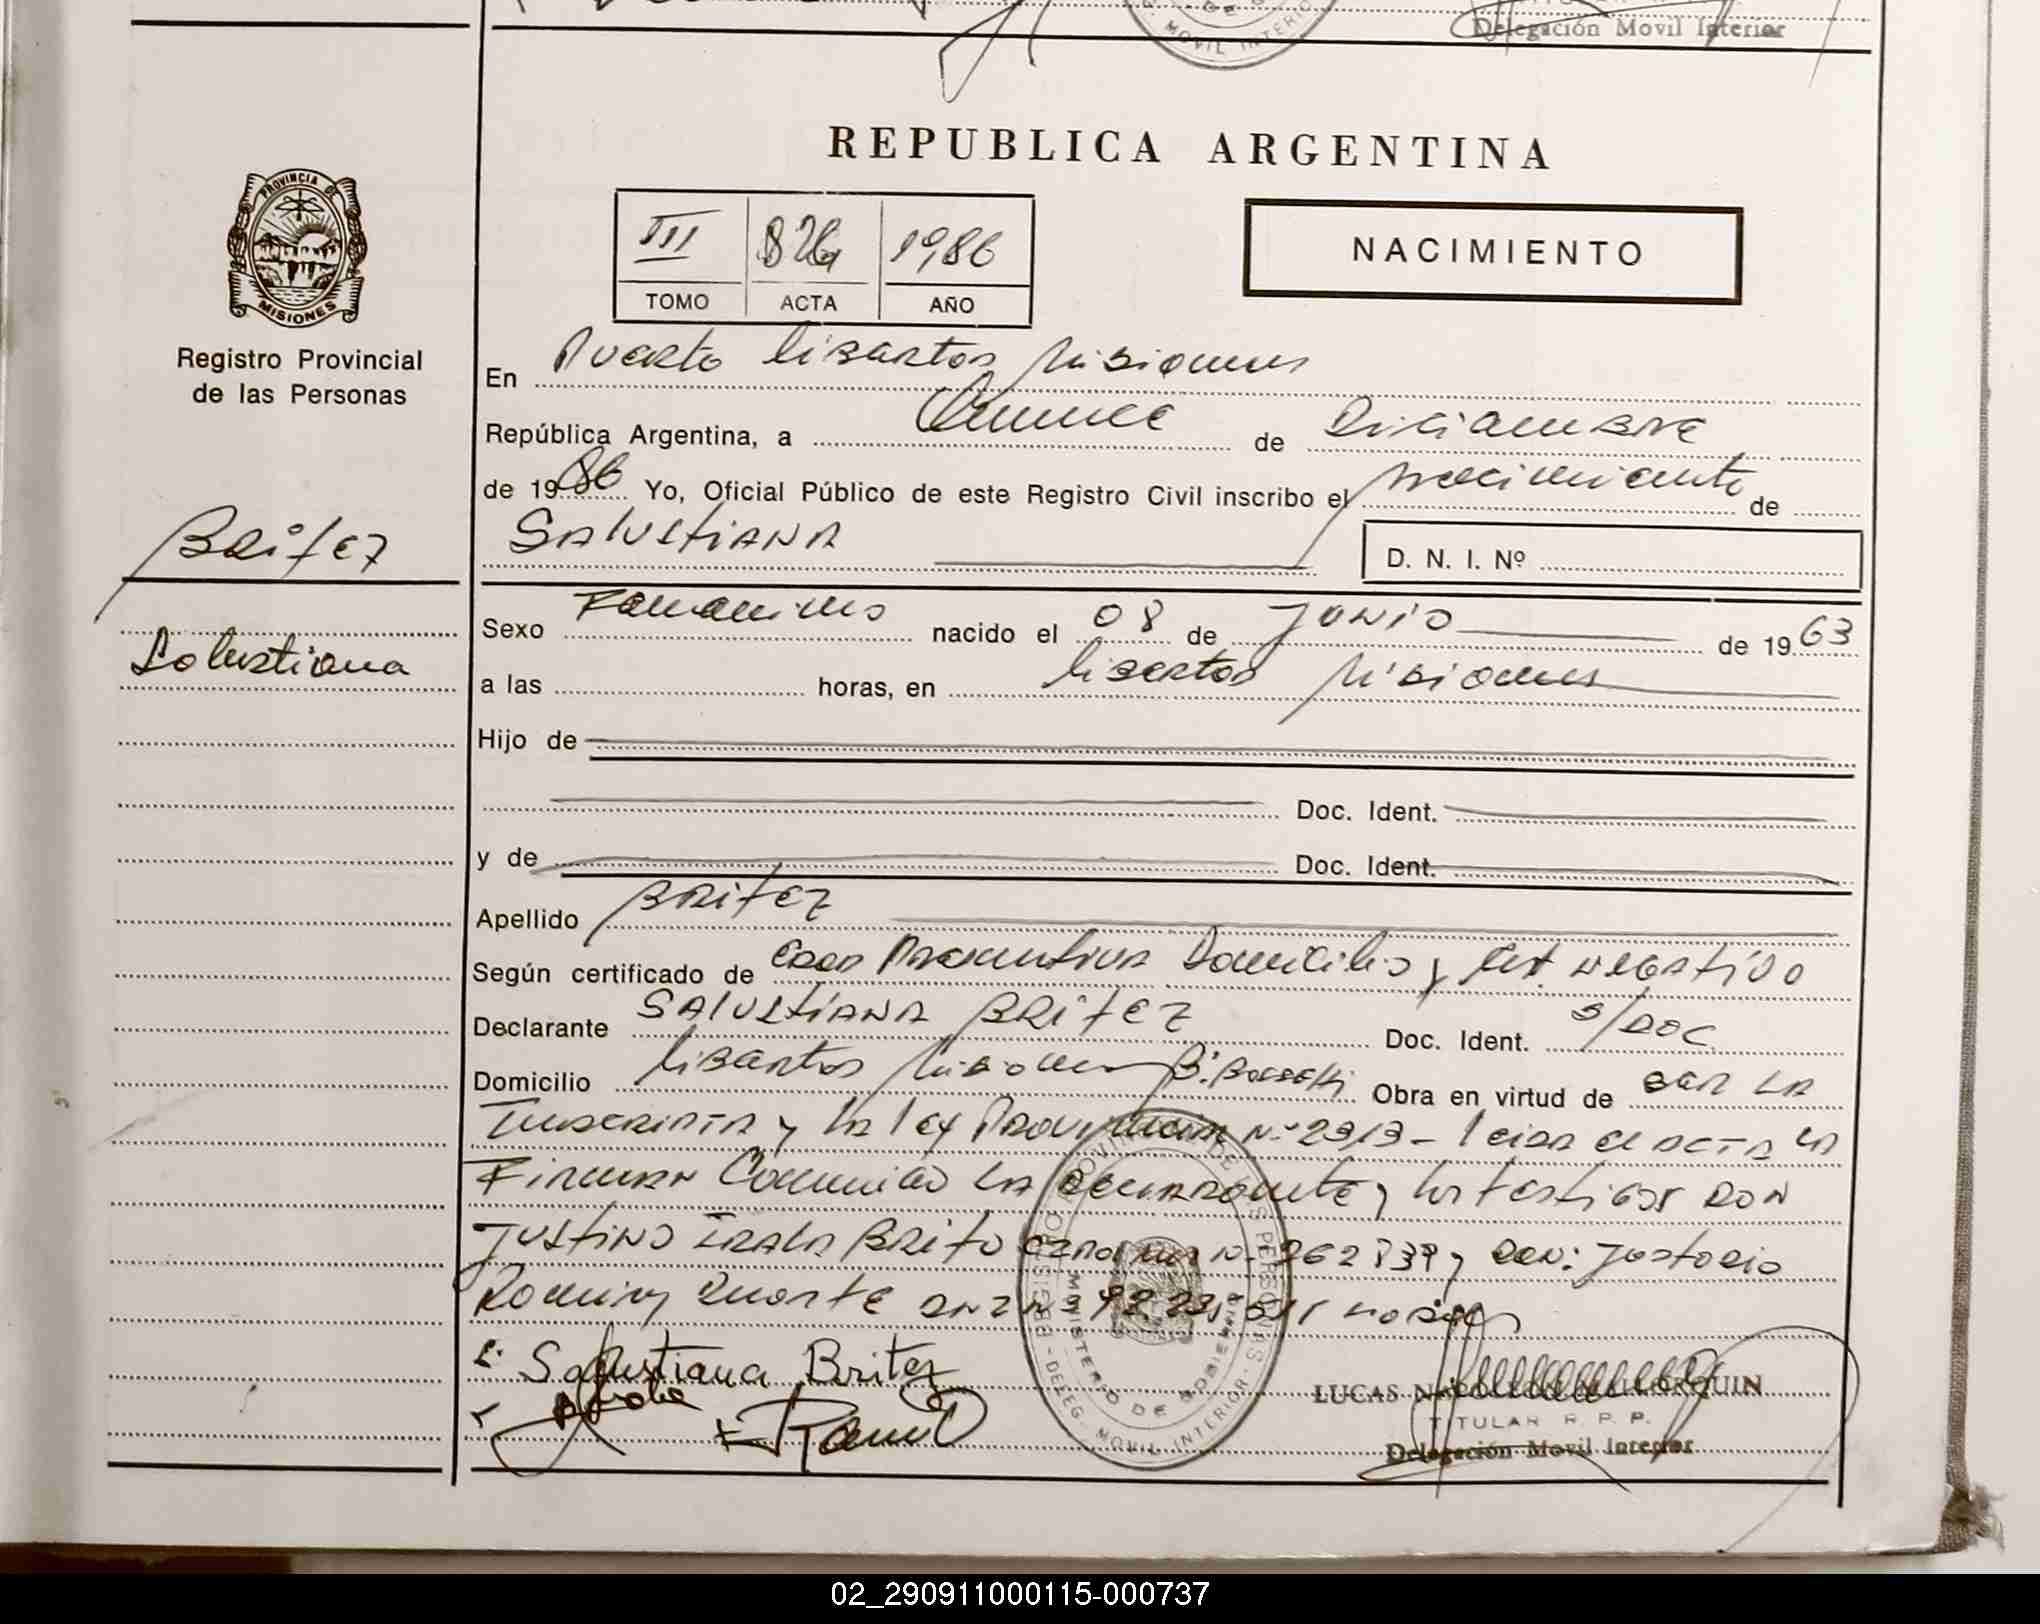 Delegación Movil Interior
REPUBLICA ARGENTINA
PROVINCIA DE
MISIONES
Registro Provincial
de las Personas
III 826 1986
TOMO ACTA AÑO
NACIMIENTO
En Puerto Libertad Misiones
República Argentina, a Quince de Diciembre
de 1986 Yo, Oficial Público de este Registro Civil inscribo el nacimiento de
SALUSTIANA
D. N. I. Nº
BRITEZ
Salustiana
Sexo Femenino nacido el 08 de JUNIO de 1963
a las horas, en Libertad Misiones
Hijo de
Doc. Ident.
y de Doc. Ident.
Apellido BRITEZ
Según certificado de Domicilio y Cert. NEGATIVO
Declarante SALUSTIANA BRITEZ Doc. Ident. S/DOC.
Domicilio Libertad Misiones Obra en virtud de SER LA
Inscripta y la ley Provincial Nº 2913 - leida el ACTA LA
Firman Conmigo LA declarante y los testigos DON
JUSTINO IRALA BRITO y DON:
Duarte
Salustiana Britez
LUCAS
TITULAR R. P. P.
Delegación Movil Interior
MINISTERIO DE GOBIERNO
DELEG. MOVIL INTERIOR
02_290911000115-000737